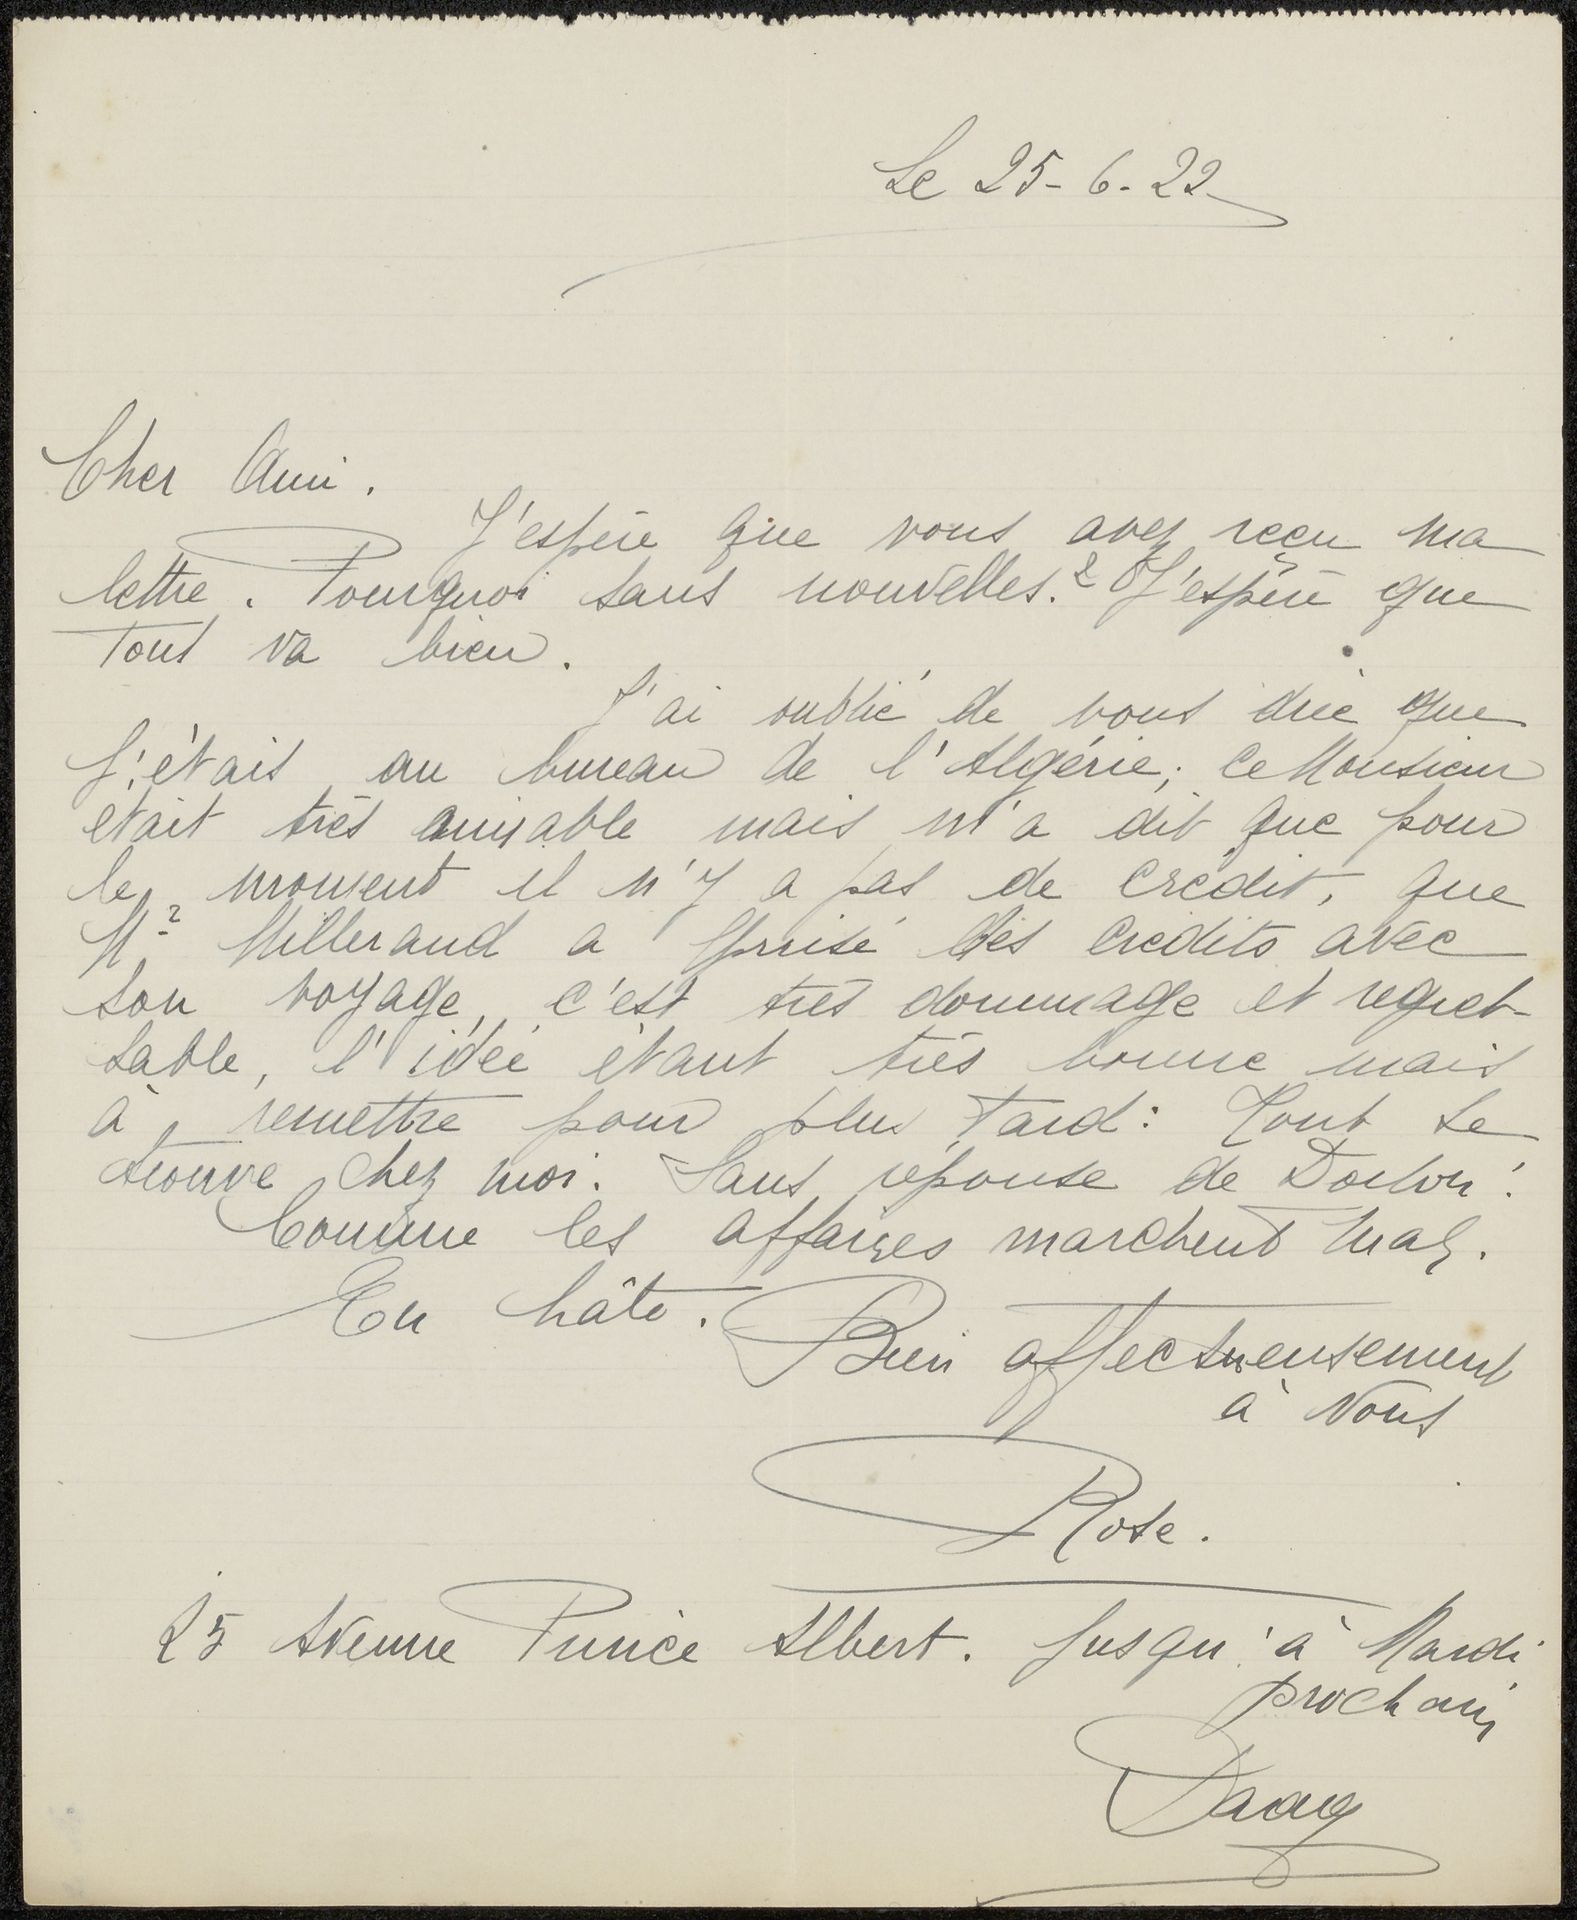 Le 25-6-22
Cher Ami.
J'espère que vous avez reçu ma
lettre. Pourquoi sans nouvelles.? J'espère que
tout va bien.
J'ai oublié de vous dire que
j'étais au bureau de l'Algérie; ce Monsieur
était très aimable mais m'a dit que pour
le moment il n'y a pas de crédit, que
Mr Millerand a épuisé les crédits avec
son voyage, c'est très dommage et regret-
table, l'idée étant très bonne mais
à remettre pour plus tard: Tout se
trouve chez moi. Sans réponse de
Comme les affaires marchent mal.
En hâte.
Bien affectueusement
à vous
Rose.
25 Avenue Prince Albert. Jusqu'à Mardi
prochain